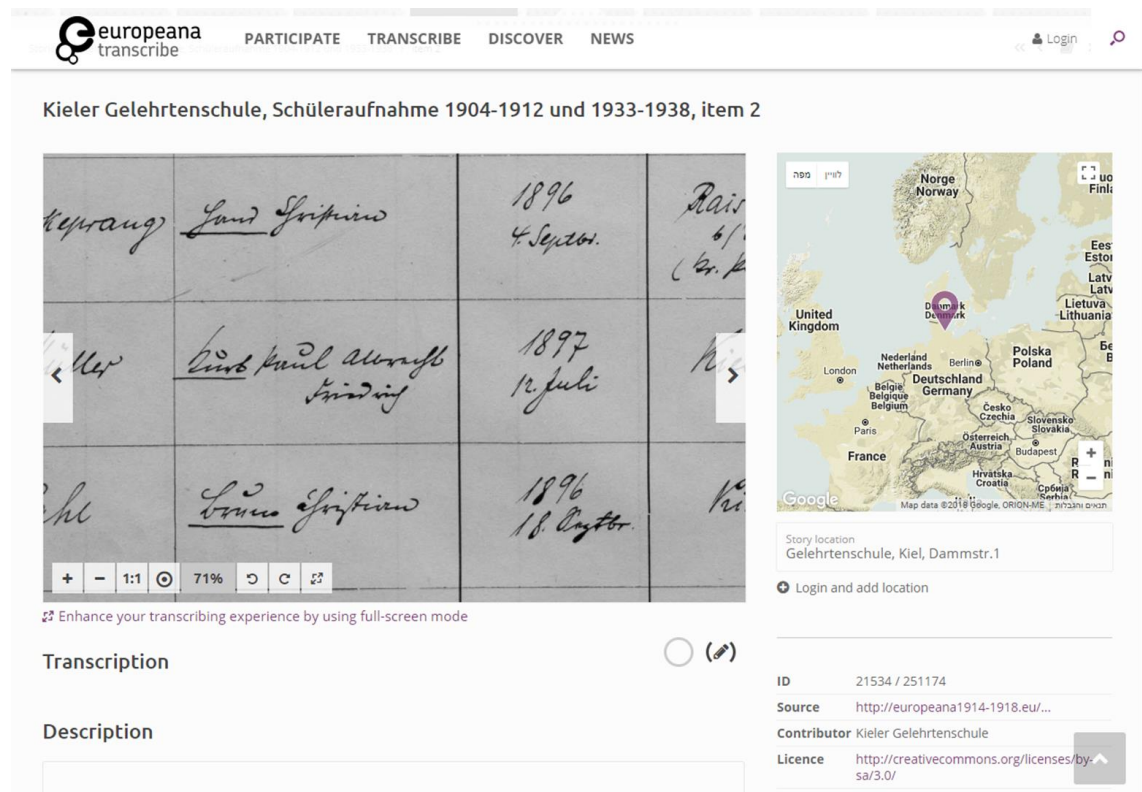 europeana
transcribe
PARTICIPATE TRANSCRIBE DISCOVER NEWS
Login
Kieler Gelehrtenschule, Schüleraufnahme 1904-1912 und 1933-1938, item 2
Hans Christian
1896
4. Septbr.
Kurt Paul Albrecht
Friedrich
1897
12. Juli
Bruno Christian
1896
18. Septbr.
+ - 1:1 71%
Enhance your transcribing experience by using full-screen mode
Transcription
Description
מפה לוויין
Norge
Norway
United
Kingdom
Danmark
Denmark
Lietuva
Lithuania
Nederland
Netherlands
Berlin
Polska
Poland
London
België
Belgique
Belgium
Deutschland
Germany
Paris
Česko
Czechia
Slovensko
Slovakia
Österreich
Austria
Budapest
France
Hrvatska
Croatia
Србија
Serbia
Google
Map data ©2018 Google, ORION-ME תנאים והגבלות
Story location
Gelehrtenschule, Kiel, Dammstr.1
Login and add location
ID 21534 / 251174
Source http://europeana1914-1918.eu/...
Contributor Kieler Gelehrtenschule
Licence http://creativecommons.org/licenses/by-
sa/3.0/